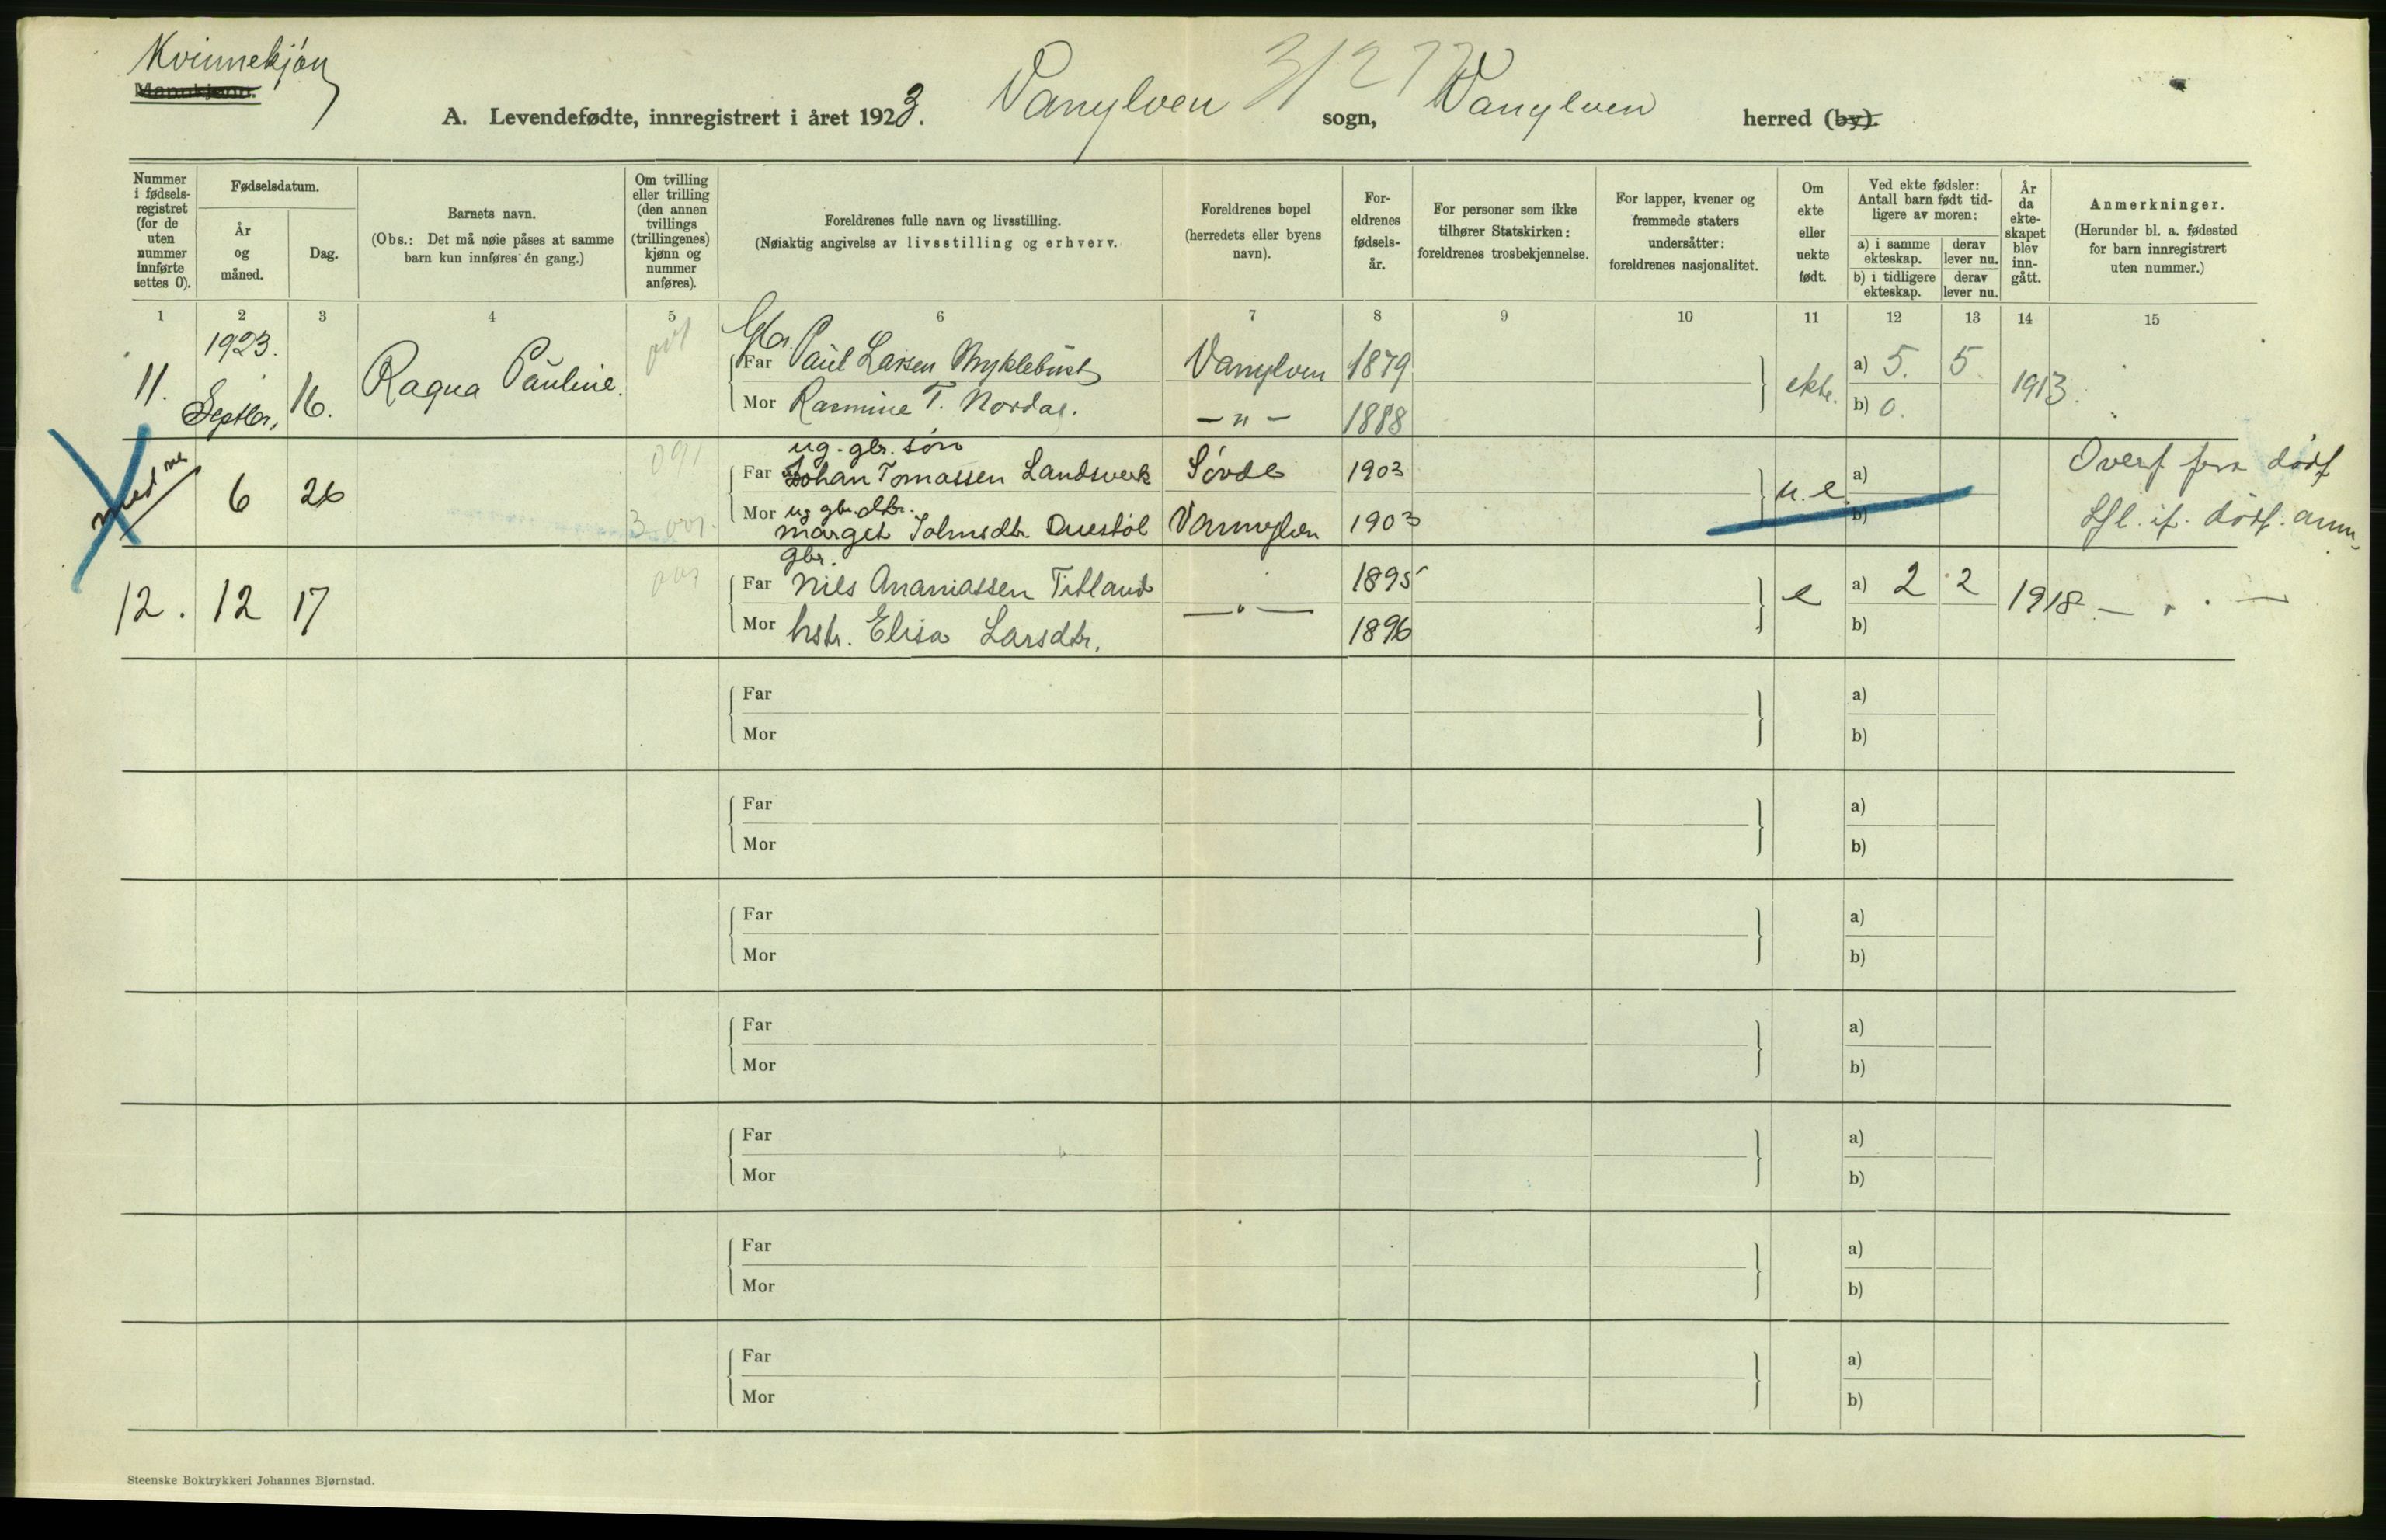 Kvinnekjøn
Mannkjønn.
A. Levendefødte, innregistrert i året 1923. Vanylven sogn, Vanylven herred (by).
Nummer i fødselsregistret (for de uten nummer innførte settes 0).
Fødselsdatum.
År og måned.
Dag.
Barnets navn.
(Obs.: Det må nøie påses at samme barn kun innføres én gang.)
Om tvilling eller trilling (den annen tvillings (trillingenes) kjønn og nummer anføres).
Foreldrenes fulle navn og livsstilling.
(Nøiaktig angivelse av livsstilling og erhverv.
Foreldrenes bopel (herredets eller byens navn).
Foreldrenes fødselsår.
For personer som ikke tilhører Statskirken: foreldrenes trosbekjennelse.
For lapper, kvener og fremmede staters undersåtter: foreldrenes nasjonalitet.
Om ekte eller uekte født.
Ved ekte fødsler: Antall barn født tidligere av moren:
a) i samme ekteskap.
derav lever nu.
b) i tidligere ekteskap.
derav lever nu.
År da ekteskapet blev inngått.
Anmerkninger.
(Herunder bl. a. fødested for barn innregistrert uten nummer.)
1 2 3 4 5 6 7 8 9 10 11 12 13 14 15
1923.
11. Septbr. 16. Ragna Pauline.
Gbr.
Far Paul Larsen Myklebust Vanylven 1879 ekte. a) 5. 5 1913.
Mor Rasmine T. Nordal. — " — 1888 b) 0.
ug. gbr. søn
6 26 Far Johan Tomassen Landsverk Søvde 1903 u.e. a)
Mor ug gbr.dtr. Vannylven 1903 b)
gbr.
12. 12 17 Far Nils Ananiassen Titland — " — 1895 e a) 2 2 1918
Mor hstr. Elisa Larsdtr. 1896 b)
Far a)
Mor b)
Far a)
Mor b)
Far a)
Mor b)
Far a)
Mor b)
Far a)
Mor b)
Far a)
Mor b)
Far a)
Mor b)
Steenske Boktrykkeri Johannes Bjørnstad.